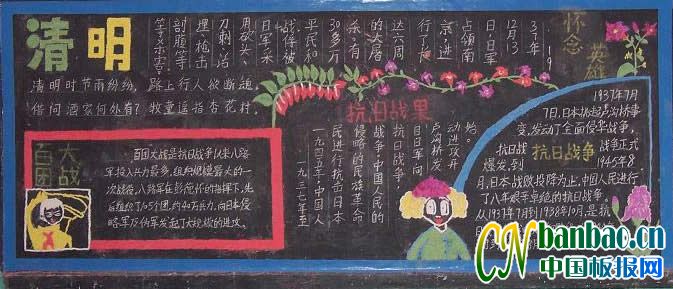 清明
清明时节雨纷纷，路上行人欲断魂。
借问酒家何处有？牧童遥指杏花村。
19
37年
12月13
日，日军
占领南
京，进
行了
达六周
的大屠
杀，有
30多万
平民和
战俘被
日军采
用砍头、
刀刺、活
埋、枪击
剖腹等
等杀害。
怀念
英雄
百团
大战
百团大战是抗日战争以来八路
军投入兵力最多，组织规模最大的一
次战役，八路军在彭德怀的指挥下，先
后组织了105个团，约40万兵力，向日本侵
略军及伪军发起了大规模的进攻。
抗日战果
一九三七年至
一九四五年中国人
民进行抗击日本
侵略的民族革命
战争中国人民的
抗日战争，
日日军向
卢沟桥发
动进攻开
始。
1937年7月
7日，日本挑起卢沟桥事
变，发动了全面侵华战争，
抗日战 抗日战争 战争正式
爆发，到 1945年8
月，日本战败投降为止，中国人民进行
了八年艰辛卓绝的抗日战争。
从1937年7月到1938年10月，是抗
CNbanbao.cn
中国板报网